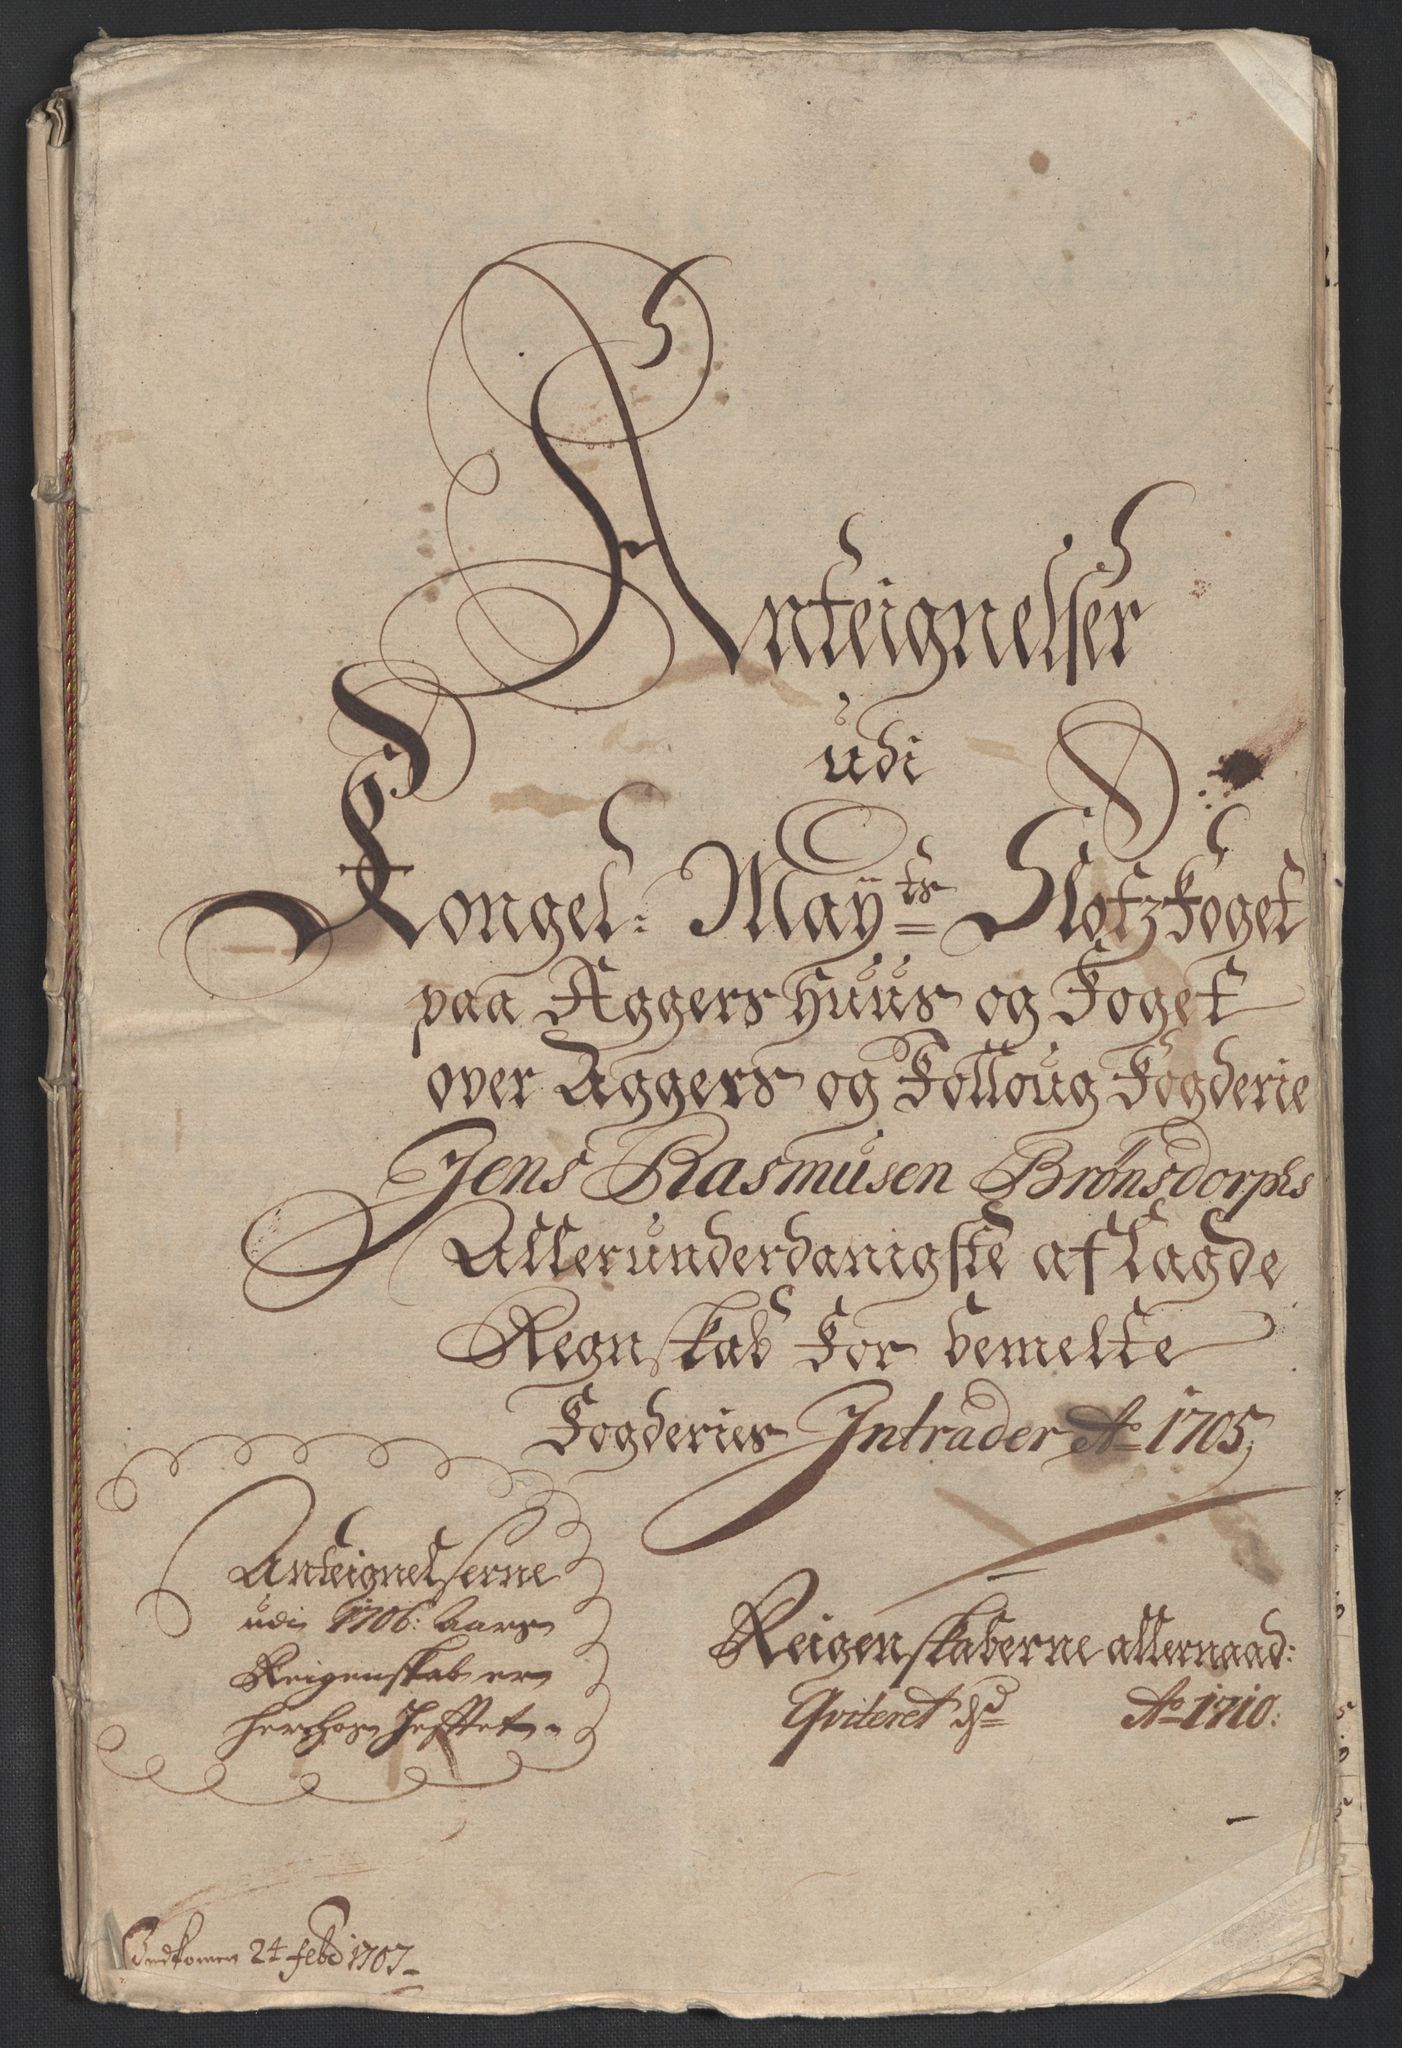 Anteignelser
udi
Kongel: Mayts Slotzfoget
paa Aggershuus og Foget
over Aggers og Folloug Fogderie
Jens Rasmusen Brønsdorphs
Allerunderdanigste aflagde
Regnskab for bemelte
Fogderies Intrader Ao 1705,
Anteignelserne
udi 1706: Aars
Reigenskab er
herhos Hefftet
Reigenskaberne allernaad:
Qviteret Ao 1710:
Indkomen 24 febr 1707